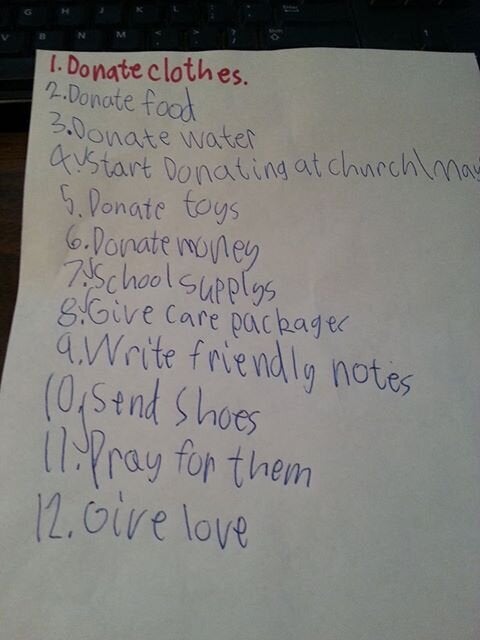 1. Donate clothes.
2. Donate food
3. Donate water
4. Start Donating at church\
5. Donate toys
6. Donate money
7. School supplys
8. Give care packages
9. Write friendly notes
10. Send Shoes
11. Pray for them
12. Give love